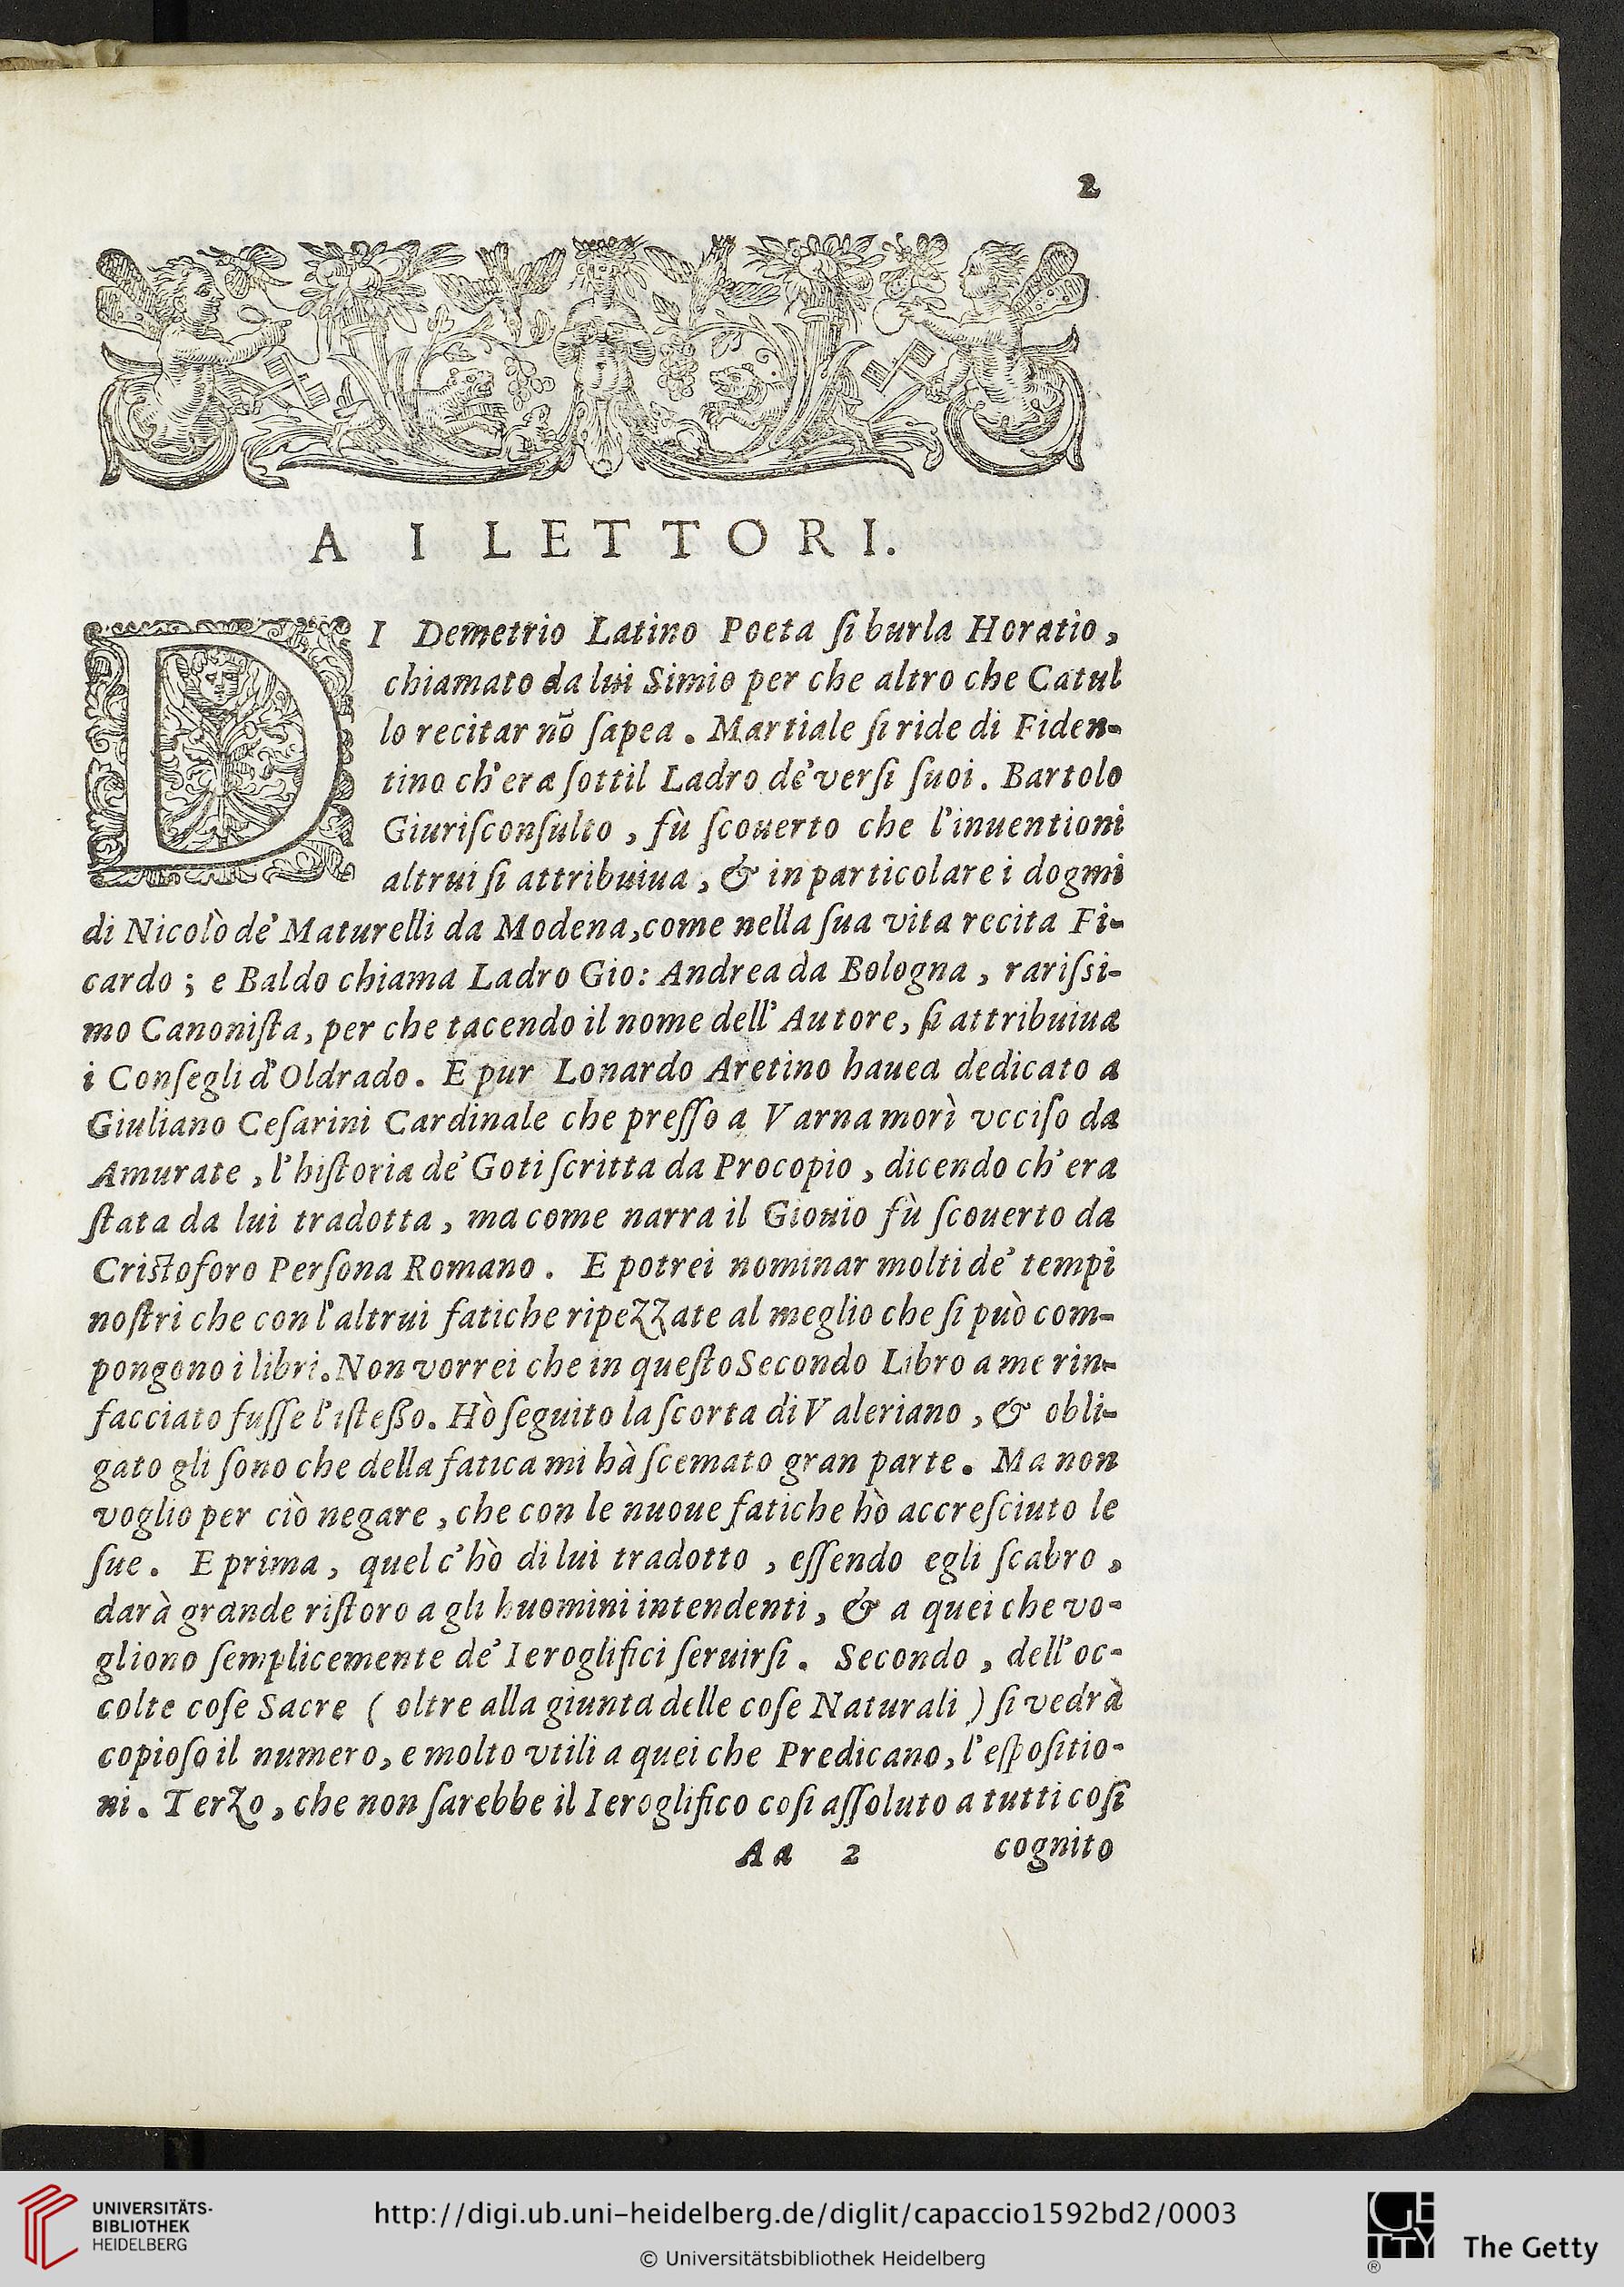 2
A I LETTORI.
DI Demetrio Latino Poeta ſi burla Horatio,
chiamato da lui Simio per che altro che Catul
lo recitar nō ſapea. Martiale ſi ride di Fiden-
tino ch'era ſottil Ladro de' verſi ſuoi. Bartolo
Giuriſconſulto, fù ſcouerto che l'inuentioni
altrui ſi attribuiua, & in particolare i dogmi
di Nicolò de' Maturelli da Modena, come nella ſua vita recita Fi-
cardo; e Baldo chiama Ladro Gio: Andrea da Bologna, rariſsi-
mo Canoniſta, per che tacendo il nome dell'Autore, ſi attribuiua
i Conſegli d'Oldrado. E pur Lonardo Aretino hauea dedicato a
Giuliano Ceſarini Cardinale che preſſo a Varna morì vcciſo da
Amurate, l'hiſtoria de' Goti ſcritta da Procopio, dicendo ch'era
ſtata da lui tradotta, ma come narra il Giouio fù ſcouerto da
Criſtoforo Perſona Romano. E potrei nominar molti de' tempi
noſtri che con l'altrui fatiche ripezzate al meglio che ſi può com-
pongono i libri. Non vorrei che in queſto Secondo Libro a me rin-
facciato fuſſe l'iſteßo. Hò ſeguito la ſcorta di Valeriano, & obli-
gato gli ſono che della fatica mi hà ſcemato gran parte. Ma non
voglio per ciò negare, che con le nuoue fatiche hò accreſciuto le
ſue. E prima, quel c'hò di lui tradotto, eſſendo egli ſcabro,
darà grande riſtoro a gli huomini intendenti, & a quei che vo-
gliono ſemplicemente de' Ieroglifici ſeruirſi. Secondo, dell'oc-
colte coſe Sacre ( oltre alla giunta delle coſe Naturali ) ſi vedrà
copioſo il numero, e molto vtili a quei che Predicano, l'eſpoſitio-
ni. Terzo, che non ſarebbe il Ieroglifico coſi aſſoluto a tutti coſi
Aa 2 cognito
UNIVERSITÄTS-
BIBLIOTHEK
HEIDELBERG
http://digi.ub.uni-heidelberg.de/diglit/capaccio1592bd2/0003
© Universitätsbibliothek Heidelberg
GETTY
®
The Getty